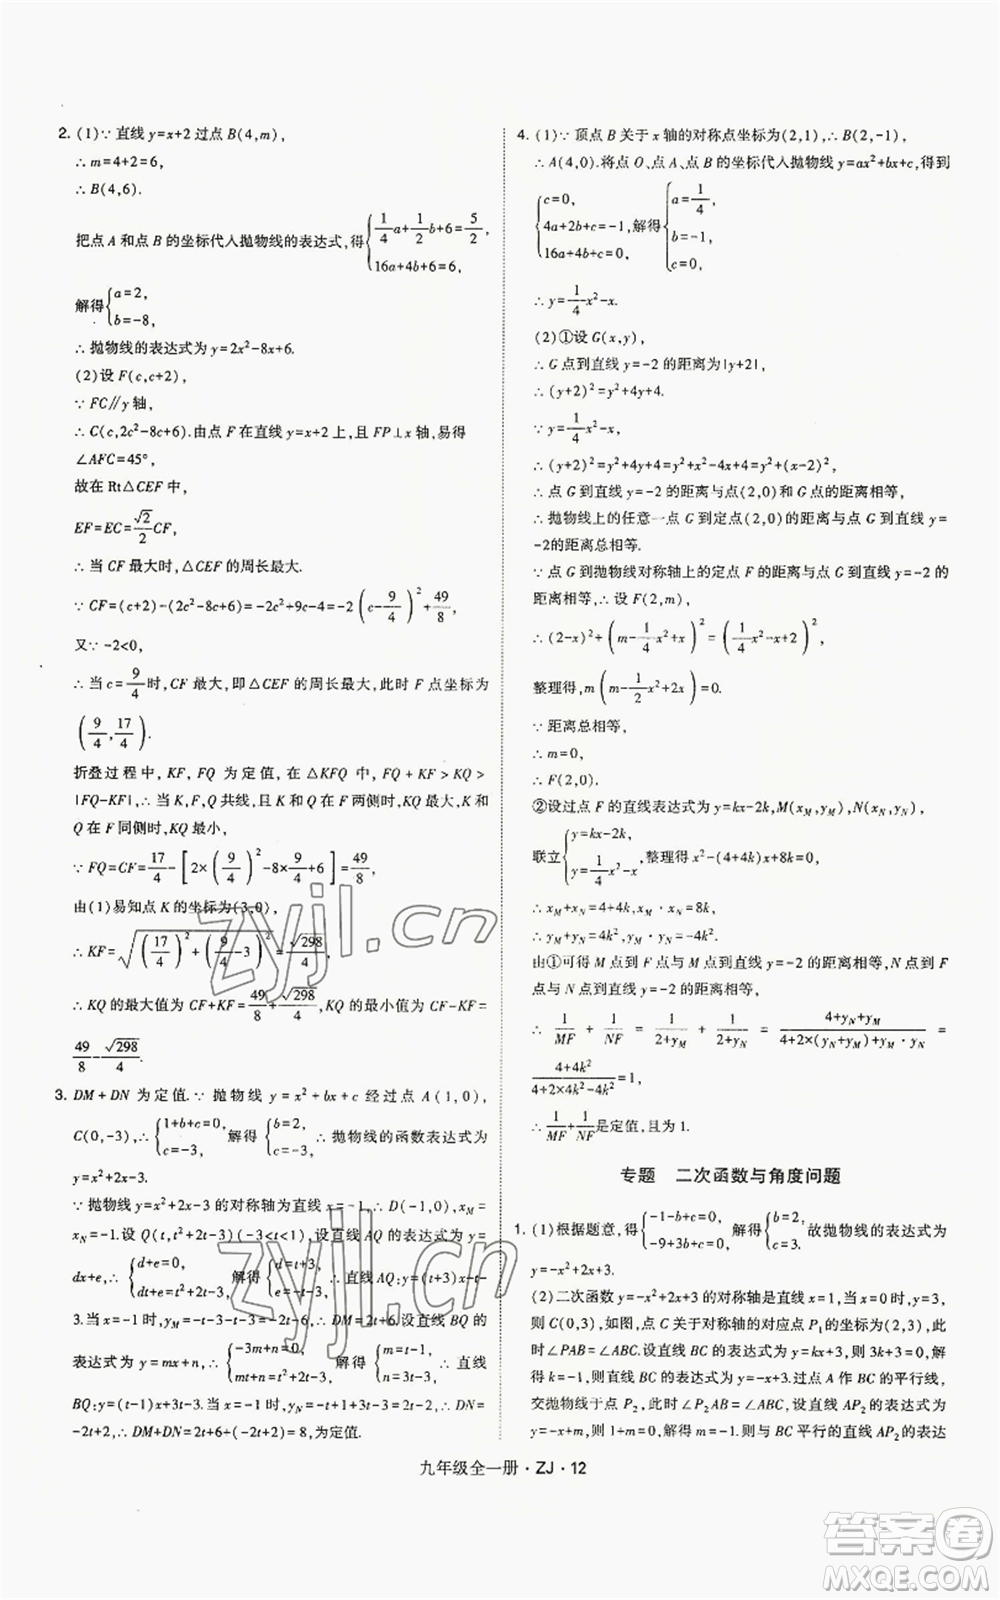 2. (1)∵ 直线 y=x+2 过点 B(4,m),
∴ m=4+2=6,
∴ B(4,6).
把点 A 和点 B 的坐标代入抛物线的表达式,得{1/4a+1/2b+6=5/2, 16a+4b+6=6,
解得{a=2, b=-8,
∴ 抛物线的表达式为 y=2x²-8x+6.
(2)设 F(c,c+2),
∵ FC∥y 轴,
∴ C(c,2c²-8c+6).由点 F 在直线 y=x+2 上,且 FP⊥x 轴,易得
∠AFC=45°,
故在 Rt△CEF 中,
EF=EC=√2/2CF,
∴ 当 CF 最大时,△CEF 的周长最大.
∵ CF=(c+2)-(2c²-8c+6)=-2c²+9c-4=-2(c-9/4)²+49/8,
又∵ -2<0,
∴ 当 c=9/4时,CF 最大,即△CEF 的周长最大,此时 F 点坐标为
(9/4,17/4).
折叠过程中,KF,FQ 为定值,在△KFQ 中,KF+FQ>KQ>
|FQ-KF|,∴ 当 K,F,Q 共线,且 K,Q 在 F 两侧时,KQ 最大,K,
Q 在 F 同侧时,KQ 最小,
∵ FQ=CF=17/4-[2×(9/4)²-8×9/4+6]=49/8,
由(1)易知点 K 的坐标为(3,0),
∴ KF=√((17/4)²+(9/4-3)²)=√298/4,
∴ KQ 的最大值为 CF+KF=49/8+√298/4,KQ 的最小值为 CF-KF=
49/8-√298/4.
3. DM+DN 为定值.∵ 抛物线 y=x²+bx+c 经过点 A(1,0),
C(0,-3),∴{1+b+c=0, c=-3, 解得{b=2, c=-3, ∴ 抛物线的函数表达式为
y=x²+2x-3.
∵ 抛物线 y=x²+2x-3 的对称轴为直线 x=-1,∴ D(-1,0),xM=
xN=-1.设 Q(t,t²+2t-3)(-3<t<1),设直线 AQ 的表达式为 y=
dx+e,∴{d+e=0, dt+e=t²+2t-3, 解得{d=t+3, e=-t-3, ∴ 直线 AQ:y=(t+3)x-t-
3.当 x=-1 时,yM=-t-3-t-3=-2t-6.设直线 BQ 的
表达式为 y=mx+n,∴{-3m+n=0, tm+n=t²+2t-3, 解得{m=t-1, n=3t-3, ∴ 直线
BQ:y=(t-1)x+3t-3.当 x=-1 时,yN=-t+1+3t-3=2t-2,∴ DN=
-2t+2,∴ DM+DN=2t+6+(-2t+2)=8,为定值.
4. (1)∵ 顶点 B 关于 x 轴的对称点坐标为(2,1),∴ B(2,-1),
∴ A(4,0).将点 O、点 A、点 B 的坐标代入抛物线 y=ax²+bx+c,得到
{c=0, 4a+2b+c=-1, 16a+4b+c=0, 解得{a=1/4, b=-1, c=0,
∴ y=1/4x²-x.
(2)①设 G(x,y),
∴ G 点到直线 y=-2 的距离为|y+2|,
∴ (y+2)²=y²+4y+4.
∵ y=1/4x²-x,
∴ (y+2)²=y²+4y+4=y²+x²-4x+4=y²+(x-2)²,
∴ 点 G 到直线 y=-2 的距离与点(2,0)和点 G 的距离相等,
∴ 抛物线上的任意一点 G 到定点(2,0)的距离与点 G 到直线 y=
-2的距离总相等.
∵ 点 G 到抛物线对称轴上的定点 F 的距离与到直线 y=-2 的
距离总相等,∴ 设 F(2,m),
∴ (2-x)²+(m-1/4x²+x)²=(1/4x²-x+2)²,
整理得,m(m-1/2x²+2x)=0.
∵ 距离总相等,
∴ m=0,
∴ F(2,0).
②设过点 F 的直线表达式为 y=kx-2k,M(xM,yM),N(xN,yN),
联立{y=kx-2k, y=1/4x²-x, 整理得 x²-(4+4k)x+8k=0,
∴ xM+xN=4+4k,xM·xN=8k,
∴ yM+yN=4k²,yM·yN=-4k².
由①可得 M 点到 F 点与 M 点到直线 y=-2 的距离相等,N 点到 F
点与 N 点到直线 y=-2 的距离相等,
∴ 1/MF + 1/NF = 1/(2+yM) + 1/(2+yN) = (4+yN+yM)/(4+2×(yN+yM)+yN·yM) =
(4+4k²)/(4+2×4k²-4k²)=1,
∴ 1/MF+1/NF是定值,且为 1.
专题 二次函数与角度问题
1. (1)根据题意,得{-1-b+c=0, -9+3b+c=0, 解得{b=2, c=3. 故抛物线的表达式为
y=-x²+2x+3.
(2)二次函数 y=-x²+2x+3 的对称轴是直线 x=1,当 x=0 时,y=3,
则 C(0,3),如图,点 C 关于对称轴的对应点 P₁的坐标为(2,3),此时
∠PAB=∠ABC.设直线 BC 的表达式为 y=kx+3,则 3k+3=0,
解得 k=-1.则直线 BC 的表达式为 y=-x+3.过点 A 作 BC 的平行线,
交抛物线于点 P₂,此时∠P₂AB=∠ABC,设直线 AP₂的表达
式为 y=-x+t,由于 AP₂与 BC 平行,所以直线 AP₂的表达
九年级全一册·ZJ·12
zyjl.cn
zyjl.cn
答案卷
MXQE.COM